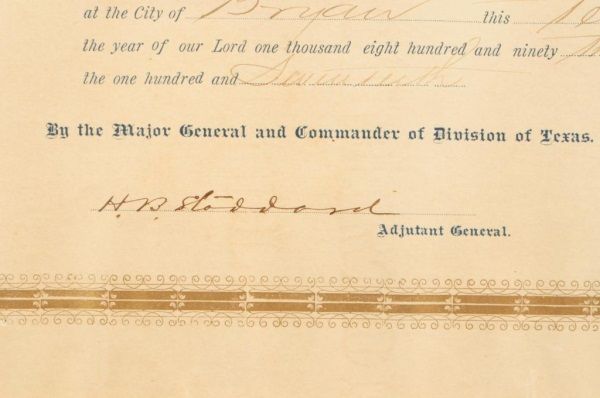 at the City of Bryan this
the year of our Lord one thousand eight hundred and ninety
the one hundred and Seventeenth
By the Major General and Commander of Division of Texas.
H.B. Stoddard
Adjutant General.